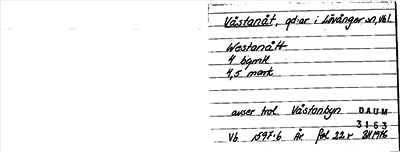 Våstanåt, gd:ar i Lövånger sn, Vbl.
Westanått
4 bgmtl
4,5 mark
avser trol. Västanbyn DAUM
3163
Vb. 1597:6 År fol 22 r